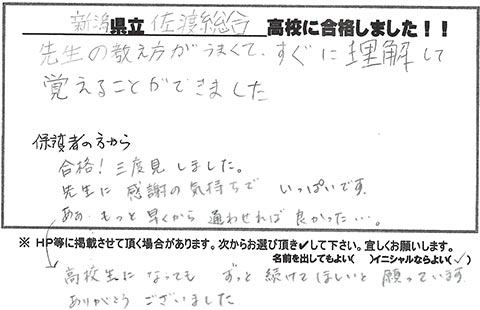 新潟県立 佐渡総合 高校に合格しました!!
先生の教え方がうまくて、すぐに理解して
覚えることができました
保護者の方から
合格!三度見しました。
先生に感謝の気持ちでいっぱいです。
ああ、もっと早くから通わせれば良かった…。
※ HP等に掲載させて頂く場合があります。次からお選び頂き✓して下さい。宜しくお願いします。
名前を出してもよい( )イニシャルならよい(✓)
高校生になってもずっと続けてほしいと願っています
ありがとうございました